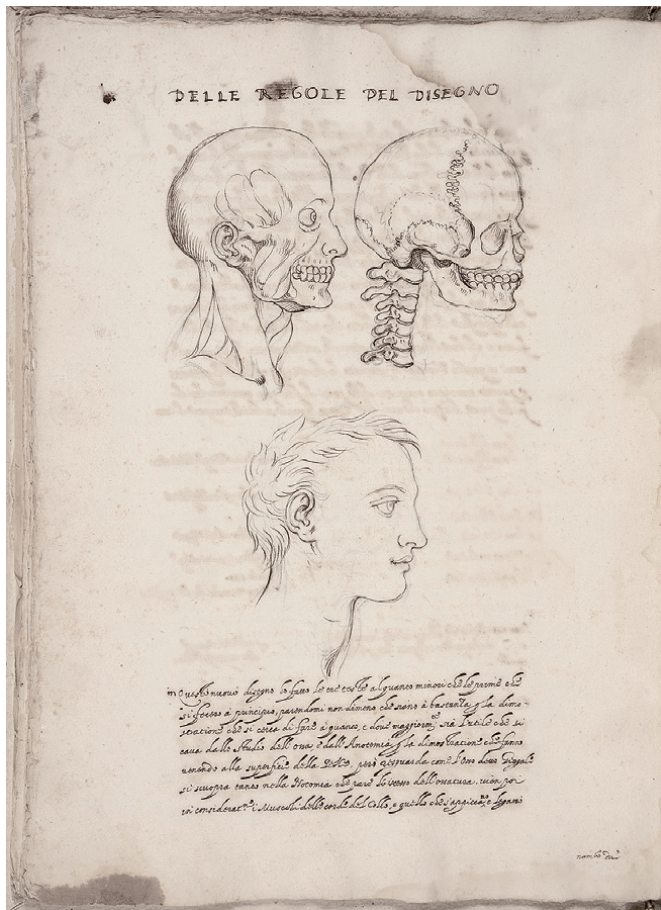 DELLE REGOLE DEL DISEGNO
in questo nuovo disegno ho fatto le tre teste alquanto minori che le prime che
si fecero à principio, parendomi non dimeno che siano à bastanza p la dimo-
stratione che si cerca di fare à quanto, e dove maggiorm.te sia l'utile che si
cava dallo studio dell'ossa, e dall'Anotomia, p la dimostratione che fanno
venendo alla superficie della pelle, però riguarda come l'osso dove
si scuopra tanto nella Notomia che pare lo stesso dell'ossatura.
in considerat.ne i Muscoli delle corde del Collo, e quello che s'appicca, e legano